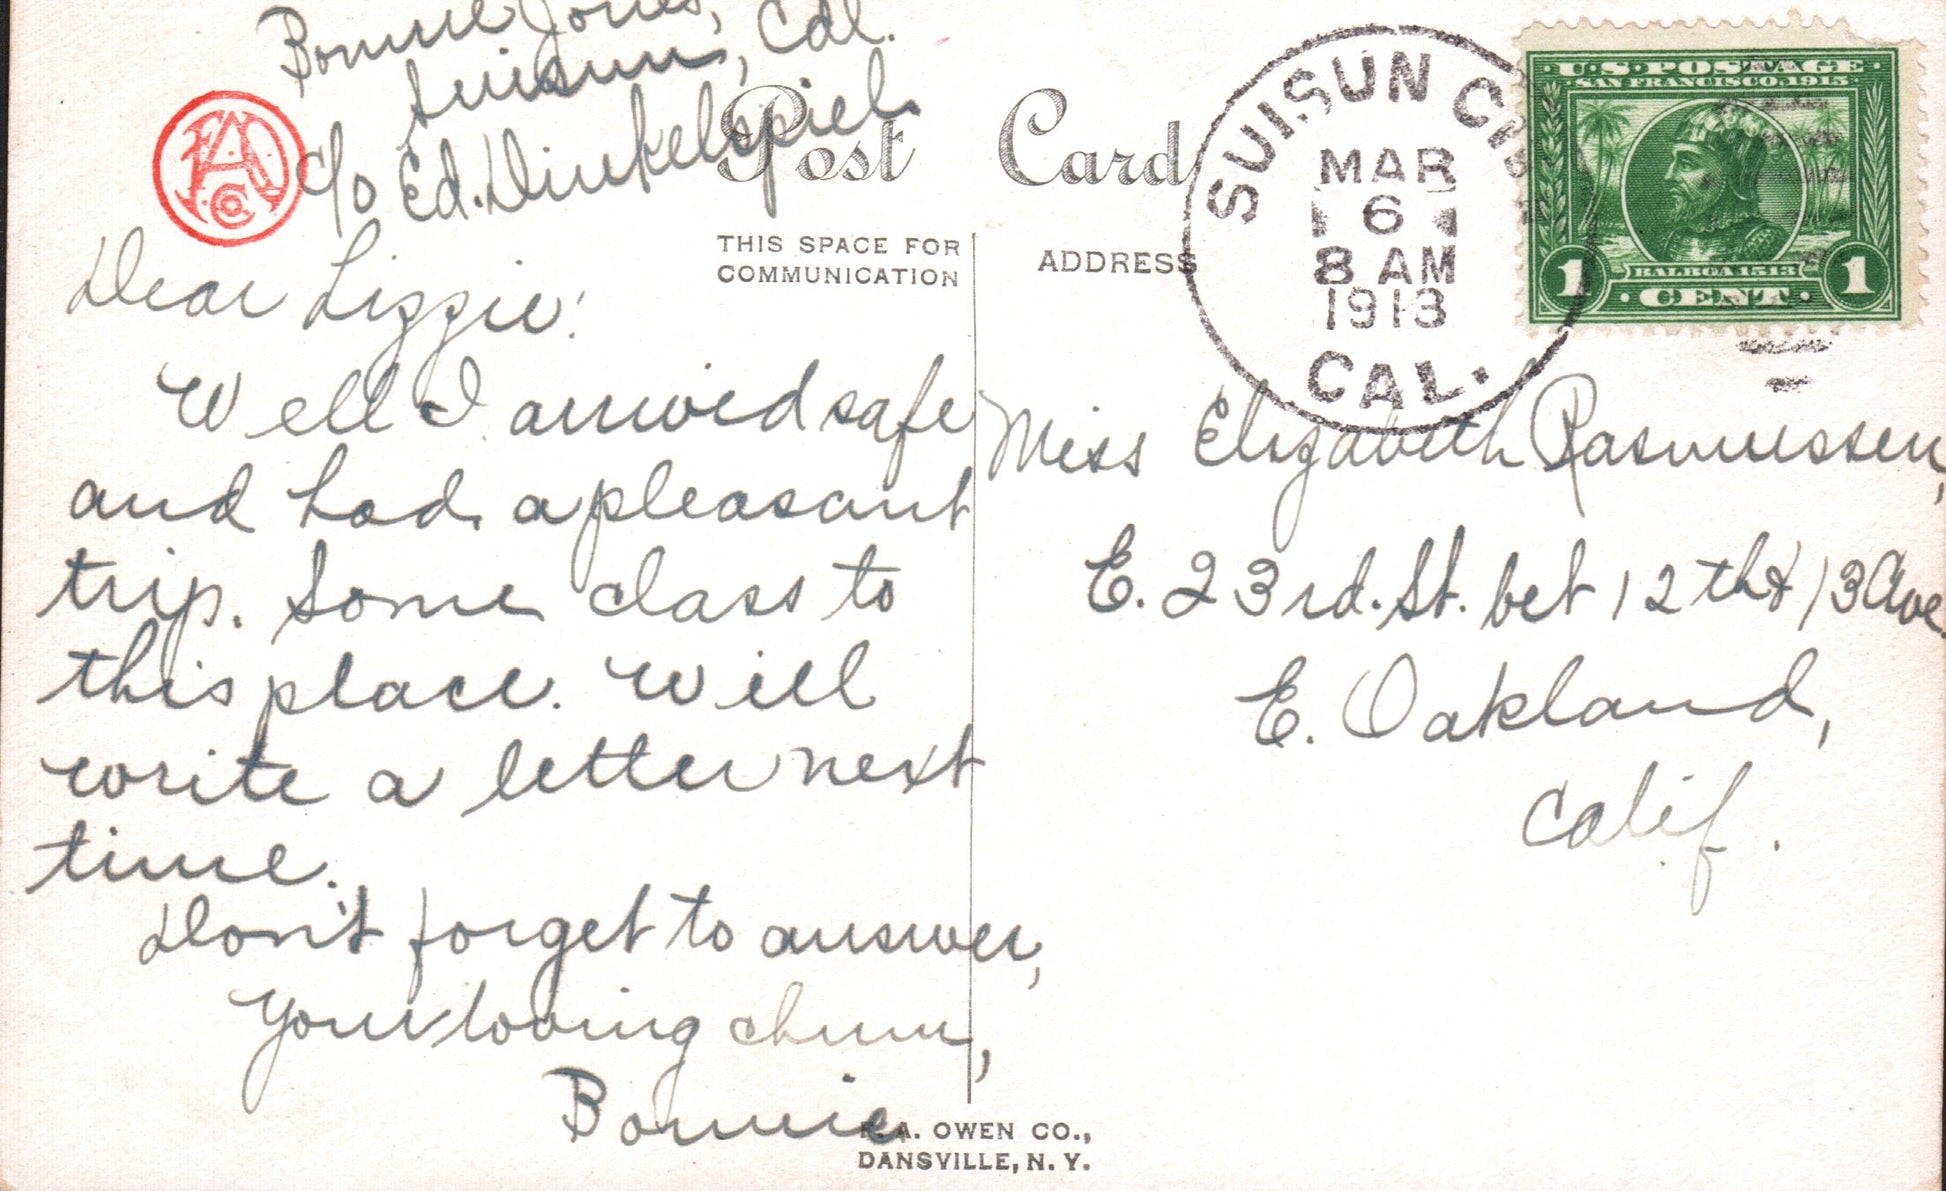 Bonnie Jones,
Suisun, Cal.
c/o Ed. Dinkelspiel.
Post Card
THIS SPACE FOR
COMMUNICATION
ADDRESS
SUISUN CITY
MAR
6
8 AM
1913
CAL.
U.S. POSTAGE
SAN FRANCISCO 1915
BALBOA 1513
1 CENT 1
Dear Lizzie:
Well I arrived safe
and had a pleasant
trip. Some class to
this place. Will
write a letter next
time.
Don't forget to answer,
Your loving chum,
Bonnie
Miss Elizabeth Rasmussen,
E. 23rd. St. bet 12th & 13 Ave.
E. Oakland,
Calif.
F. A. OWEN CO.,
DANSVILLE, N. Y.